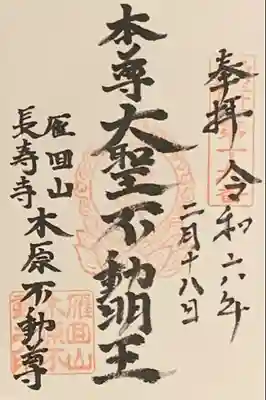 奉拝 令和六年
二月十八日
本尊 大聖不動明王
雁回山
長寿寺 木原不動尊
雁回山
木原不